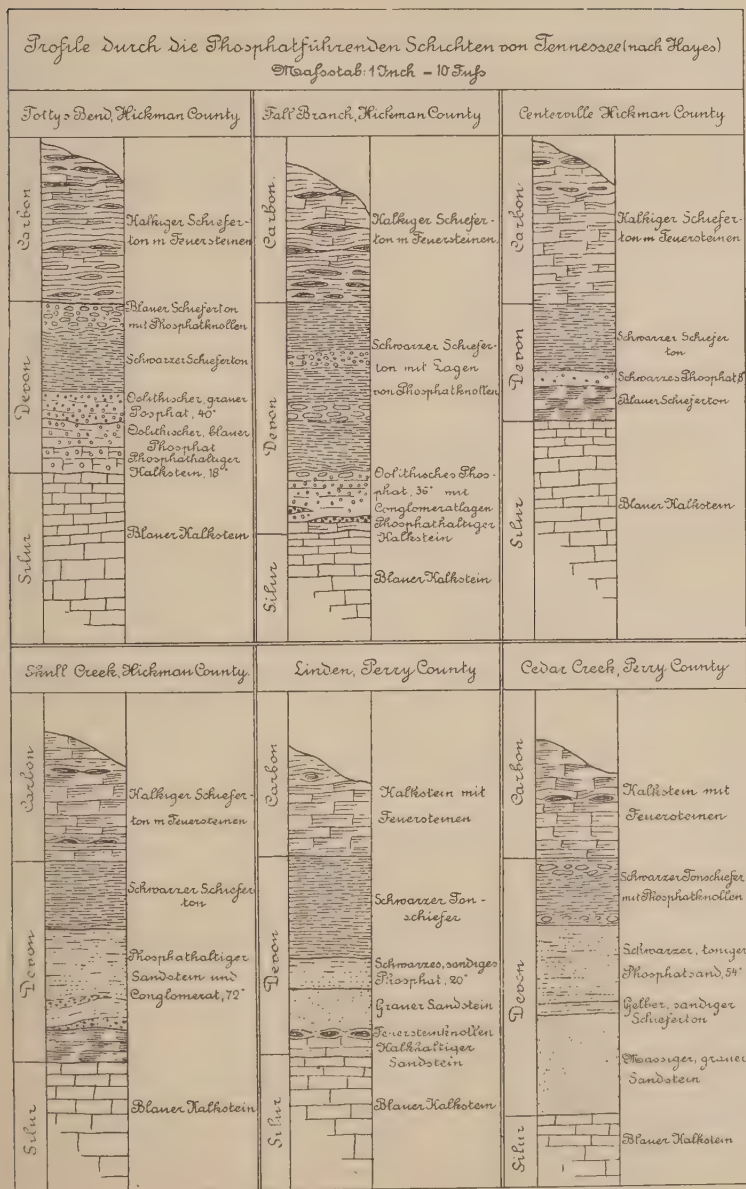 Profile durch die Phosphatführenden Schichten von Tennessee (nach Hayes)
Maßstab: 1 Inch – 10 Fuß
Tottys Bend, Hickman County
Carbon
Kalkiger Schiefer-
ton m Feuersteinen
Devon
Blauer Schieferton
mit Phosphatknollen
Schwarzer Schieferton
Oolithischer, grauer
Posphat, 40"
Oolithischer, blauer
Phosphat
Phosphathaltiger
Kalkstein, 18"
Silur
Blauer Kalkstein
Fall Branch, Hickman County
Carbon.
Kalkiger Schiefer-
ton m Feuersteinen.
Devon
Schwarzer Schiefer-
ton mit Lagen
von Phosphatknollen
Oolithisches Phos-
phat, 36" mit
Conglomeratlagen
Phosphathaltiger
Kalkstein
Silur
Blauer Kalkstein
Centerville Hickman County
Carbon
Kalkiger Schiefer-
ton m Feuersteinen
Devon
Schwarzer Schiefer
ton
Schwarzes Phosphat 8"
Blauer Schieferton
Silur
Blauer Kalkstein
Skull Creek, Hickman County.
Carbon
Kalkiger Schiefer-
ton m Feuersteinen
Devon
Schwarzer Schiefer
ton
Phosphathaltiger
Sandstein und
Conglomerat, 72"
Silur
Blauer Kalkstein
Linden, Perry County
Carbon
Kalkstein mit
Feuersteinen
Devon
Schwarzer Ton-
schiefer
Schwarzes, sandiges
Phosphat, 20"
Grauer Sandstein
Feuersteinknollen
Kalkhaltiger
Sandstein
Silur
Blauer Kalkstein
Cedar Creek, Perry County
Carbon
Kalkstein mit
Feuersteinen
Devon
Schwarzer Tonschiefer
mit Phosphatknollen
Schwarzer, toniger
Phosphatsand, 54"
Gelber, sandiger
Schieferton
Massiger, grauer
Sandstein
Silur
Blauer Kalkstein